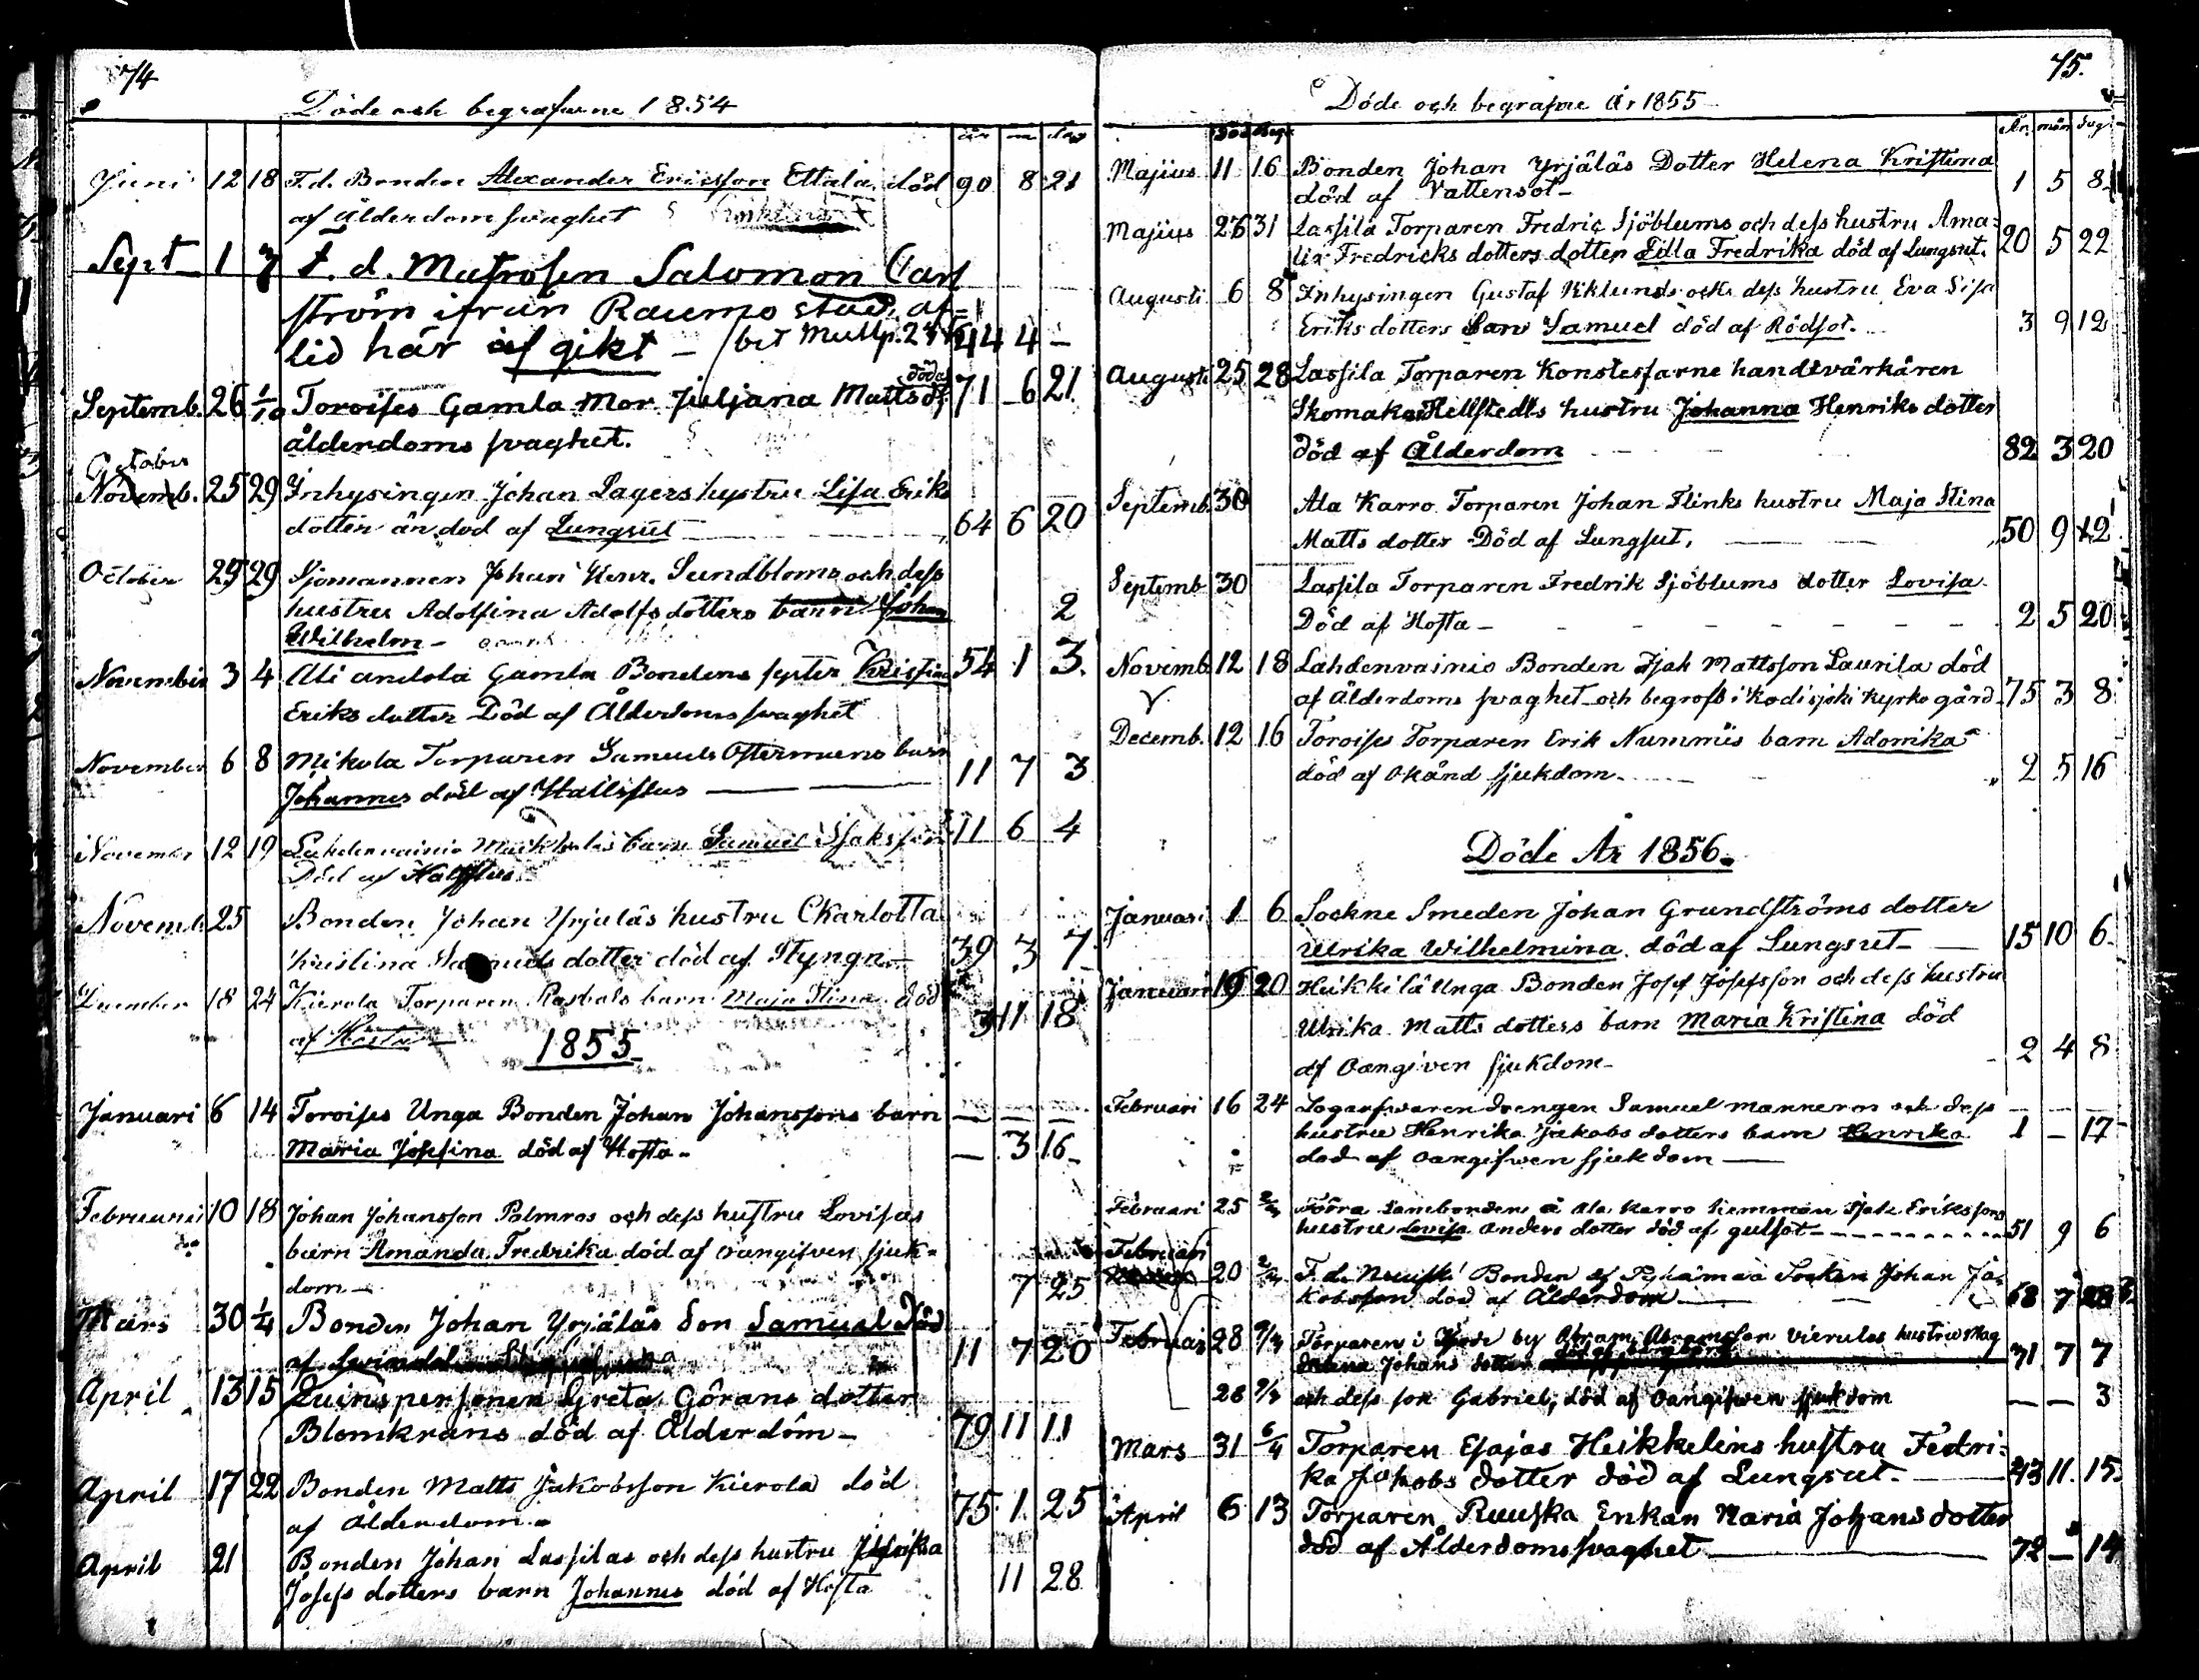 74
Döde och begrafvne 1854
år m dag
Juni 12 18 F.d. Bonden Alexander Ericsson Ettala död 90 8 21
af Ålderdomsvaghet
Sept 1 7 F. d. Matrosen Salomon Carl
ström ifrån Raumo stad, af=
lid här af gikt – 44 4 –
Septemb. 26 1/10 Toroises Gamla Mor Juljana Mattsd. död af 71 6 21
ålderdoms svaghet.
October
Novemb. 25 29 Inhysingen Johan Lagers hustru Lisa Eriks
dotter än död af Lungsut 64 6 20
October 25 29 Sjömannen Johan Henr. Sundbloms och dess
hustru Adolfina Adolfsdotters barn Johan 2
Wilhelm –
November 3 4 Ali antola Gamla Bondens syster Kristina 54 1 3.
Eriks dotter Död af Ålderdoms svaghet
November 6 8 Mikola Torparen Samuels Östermans barn
Johannes död af Hallsflus 11 7 3
November 12 19 Lahdenvainio barn Samuel Isaksson 11 6 4
Död af Halsflus
Novemb 25 Bonden Johan Yrjäläs hustru Charlotta
Kristina Samuels dotter död af Stynga 39 3 7
December 18 24 Kierola Torparen Rosbols barn Maja Stina död
af Hosta 11 18
1855
Januari 6 14 Toroises Unga Bonden Johan Johanssons barn – – –
Maria Josefina död af Hosta – – 3 16
Februari 10 18 Johan Johansson Palmros och dess hustru Lovisas
barn Amanda Fredrika död af oangifven sjuk=
dom – 7 25
Mars 30 1/4 Bonden Johan Yrjäläs Son Samuel Död
af 11 7 20
April 13 15 Qvinspersonen Greta Görans dotter
Blomkrans död af Ålderdom – 79 11 11
April 17 22 Bonden Matts Jakobsson Kierola död
af Ålderdom – 75 1 25
April 21 Bonden Johan Lassilas och dess hustru
Josefs dotters barn Johannes död af Hosta 11 28
75.
Döde och begrafne År 1855
Död Begr. År mån dag
Majius 11 16 Bonden Johan Yrjäläs Dotter Helena Kristina
död af Vattensot – 1 5 8
Majius 26 31 Lassila Torparen Fredric Sjöblums och dess hustru Ama=
lia Fredricks dotters dotter Edla Fredrika död af Lungsut. 20 5 22
Augusti 6 8 Inhysingen Gustaf Wiklunds och dess hustru Eva Lisa
Eriks dotters Barn Samuel död af Rödsot. 3 9 12
Augusti 25 28 Lassila Torparen Konstesfarne handtvärkären
Skomakar Hellstedts hustru Johanna Henriks dotter
död af Ålderdom 82 3 20
Septemb. 30 Ala Karro Torparen Johan Flinks hustru Maja Stina
Matts dotter Död af Lungsut, 50 9 12
Septemb 30 Lassila Torparen Fredrik Sjöblums dotter Lovisa
Död af Hosta – 2 5 20
Novemb 12 18 Lahdenvainio Bonden Isak Mattsson Laurila död
af Ålderdoms svaghet och begrofs i Kodisjoki kyrko gård 75 3 8
Decemb. 12 16 Toroises Torparen Erik Nummis barn Adomika
död af okänd sjukdom 2 5 16
Döde År 1856.
Januari 1 6 Sockne Smeden Johan Grundströms dotter
Ulrika Wilhelmina död af Lungsut – 15 10 6
Januari 19 20 Heikkilä Unga Bonden Josef Josefsson och dess hustru
Ulrika Matts dotters barn Maria Kristina död
af Oangiven sjukdom – 2 4 8
Februari 16 24 drengen Samuel Manneros och dess – – –
hustru Henrika Jakobs dotters barn Henrika 1 – 17
död af oangifwen sjukdom –
Februari 25 2/3 Förra Landbonden å Ala Karro hemman Isak Erikssons
hustru Lovisa Anders dotter död af gulsot – 51 9 6
Februari 20 F. d. Bonden af Pyhämaa Socken Johan Ja=
kobsson död af Ålderdom 68 7 28
Februari 28 9/3 Torparen i by Abram Abramsson Vierulas hustru Mag
dalena Johans dotter 31 7 7
28 9/3 och dess son Gabriel, död af Oangifwen sjukdom – – 3
Mars 31 6/4 Torparen Esajas Heikkelins hustru Fedri=
ka Jakobs dotter död af Lungsut. 43 11 15
April 6 13 Torparen Ruuska Enkan Maria Johansdotter
död af Ålderdomssvaghet 72 – 14